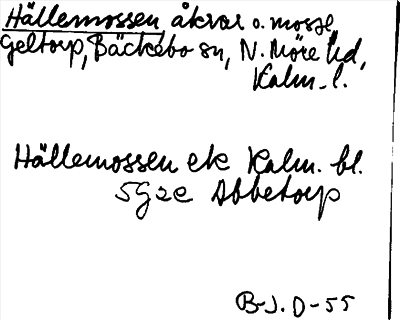 Hällemossen åkrar o. mosse,
Geltorp, Bäckebo sn, N. Möre hd,
Kalm. l.
Hällemossen ek Kalm. bl.
5G2e Abbetorp
B-J. D-55